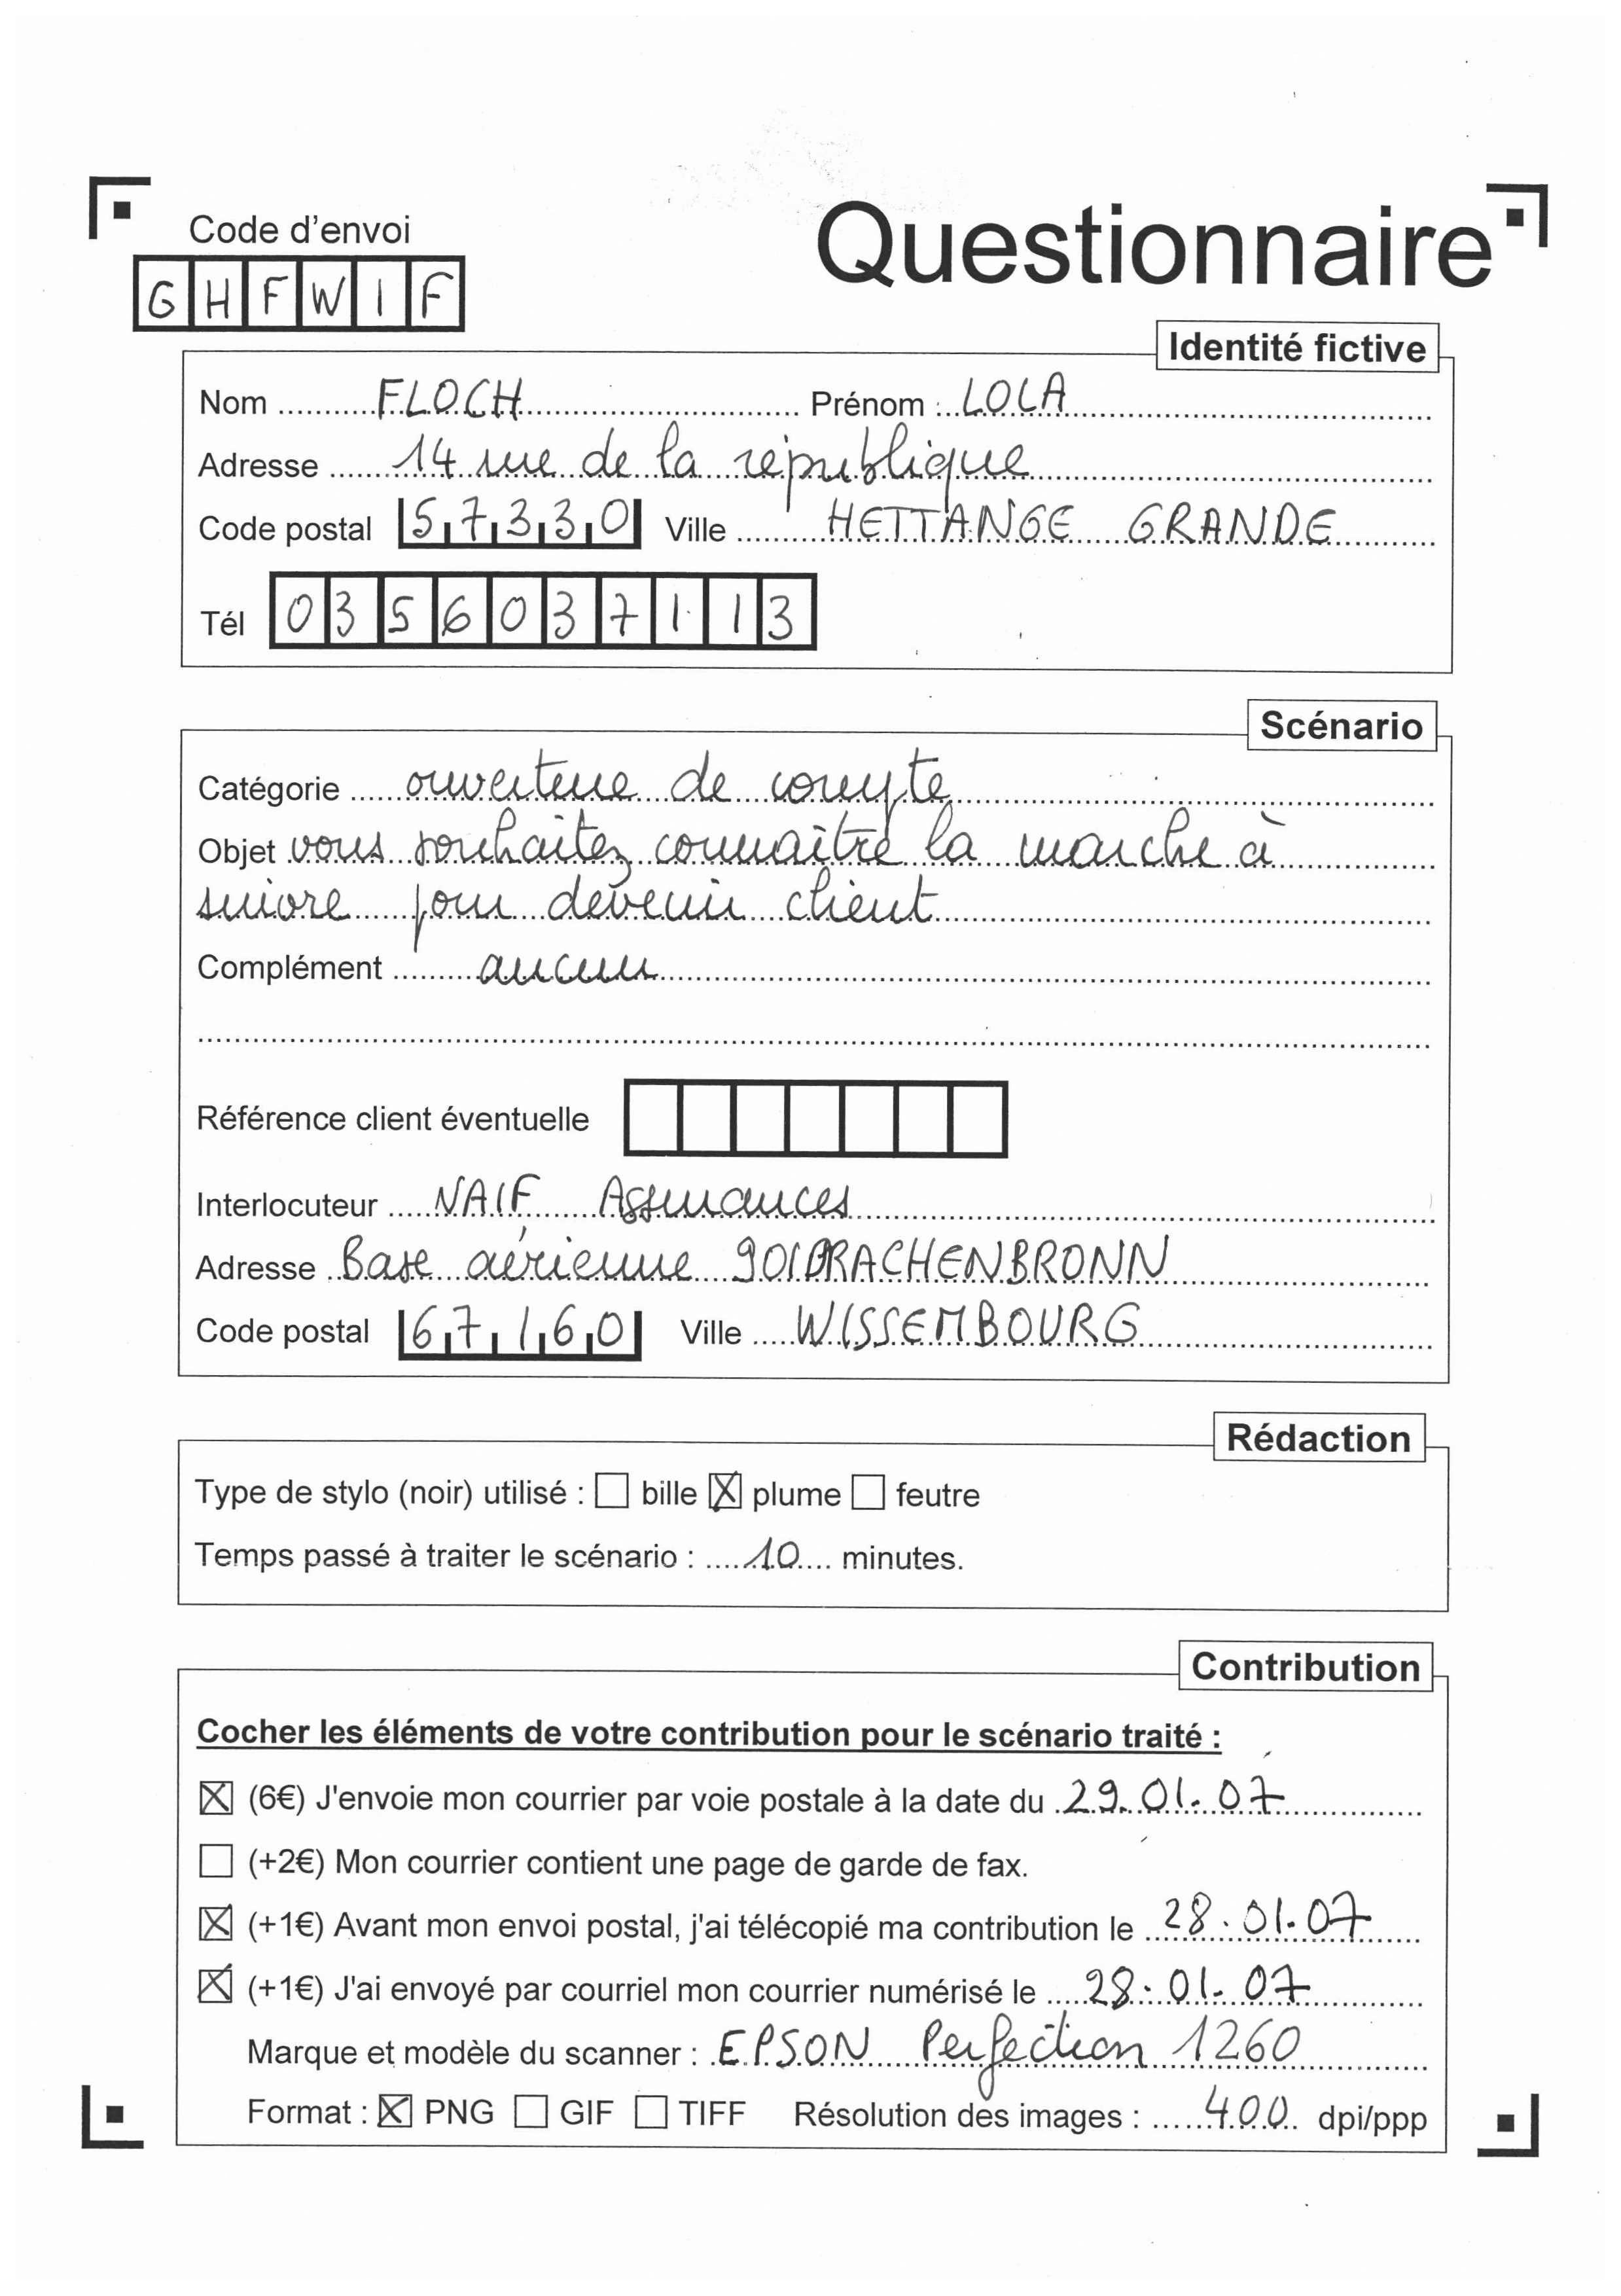 Code d'envoi
Questionnaire
GHFWIF
Identité fictive
Nom FLOCH Prénom : LOLA
Adresse 14 rue de la république
Code postal 57330 Ville HETTANGE GRANDE
Tél 0356037113
Scénario
Catégorie ouverture de compte
Objet vous souhaitez connaître la marche à
suivre pour devenir client
Complément aucun
Référence client éventuelle
Interlocuteur NAIF Assurances
Adresse Base aérienne 901 DRACHENBRONN
Code postal 67160 Ville WISSEMBOURG
Rédaction
Type de stylo (noir) utilisé : ☐ bille ☒ plume ☐ feutre
Temps passé à traiter le scénario : 10 minutes.
Contribution
Cocher les éléments de votre contribution pour le scénario traité :
☒ (6€) J'envoie mon courrier par voie postale à la date du 29.01.07
☐ (+2€) Mon courrier contient une page de garde de fax.
☒ (+1€) Avant mon envoi postal, j'ai télécopié ma contribution le 28.01.07
☒ (+1€) J'ai envoyé par courriel mon courrier numérisé le 28.01.07
Marque et modèle du scanner : EPSON Perfection 1260
Format : ☒ PNG ☐ GIF ☐ TIFF Résolution des images : 400 dpi/ppp